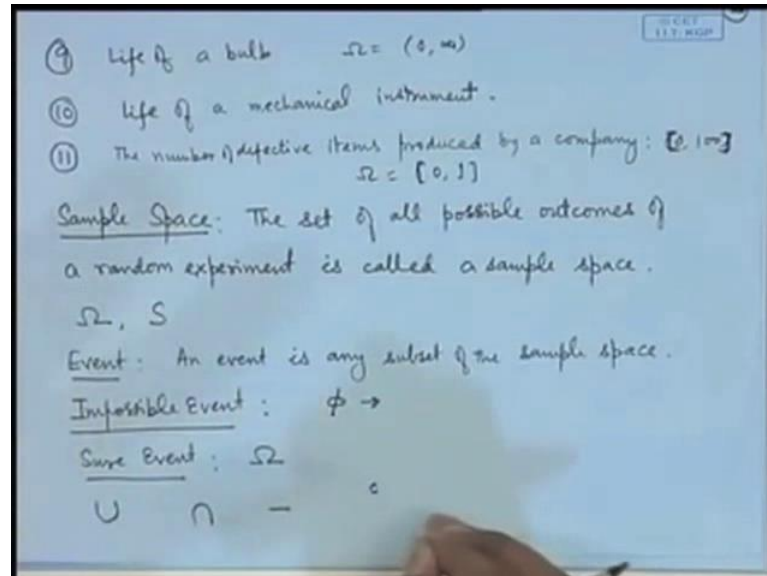 © CET
I.I.T. KGP
⑨ Life of a bulb Ω = (0, ∞)
⑩ Life of a mechanical instrument.
⑪ The number of defective items produced by a company: [0, 100]
Ω = [0, 1]
Sample Space: The set of all possible outcomes of
a random experiment is called a sample space.
Ω, S
Event: An event is any subset of the sample space.
Impossible Event: ϕ →
Sure Event: Ω
∪ ∩ — c